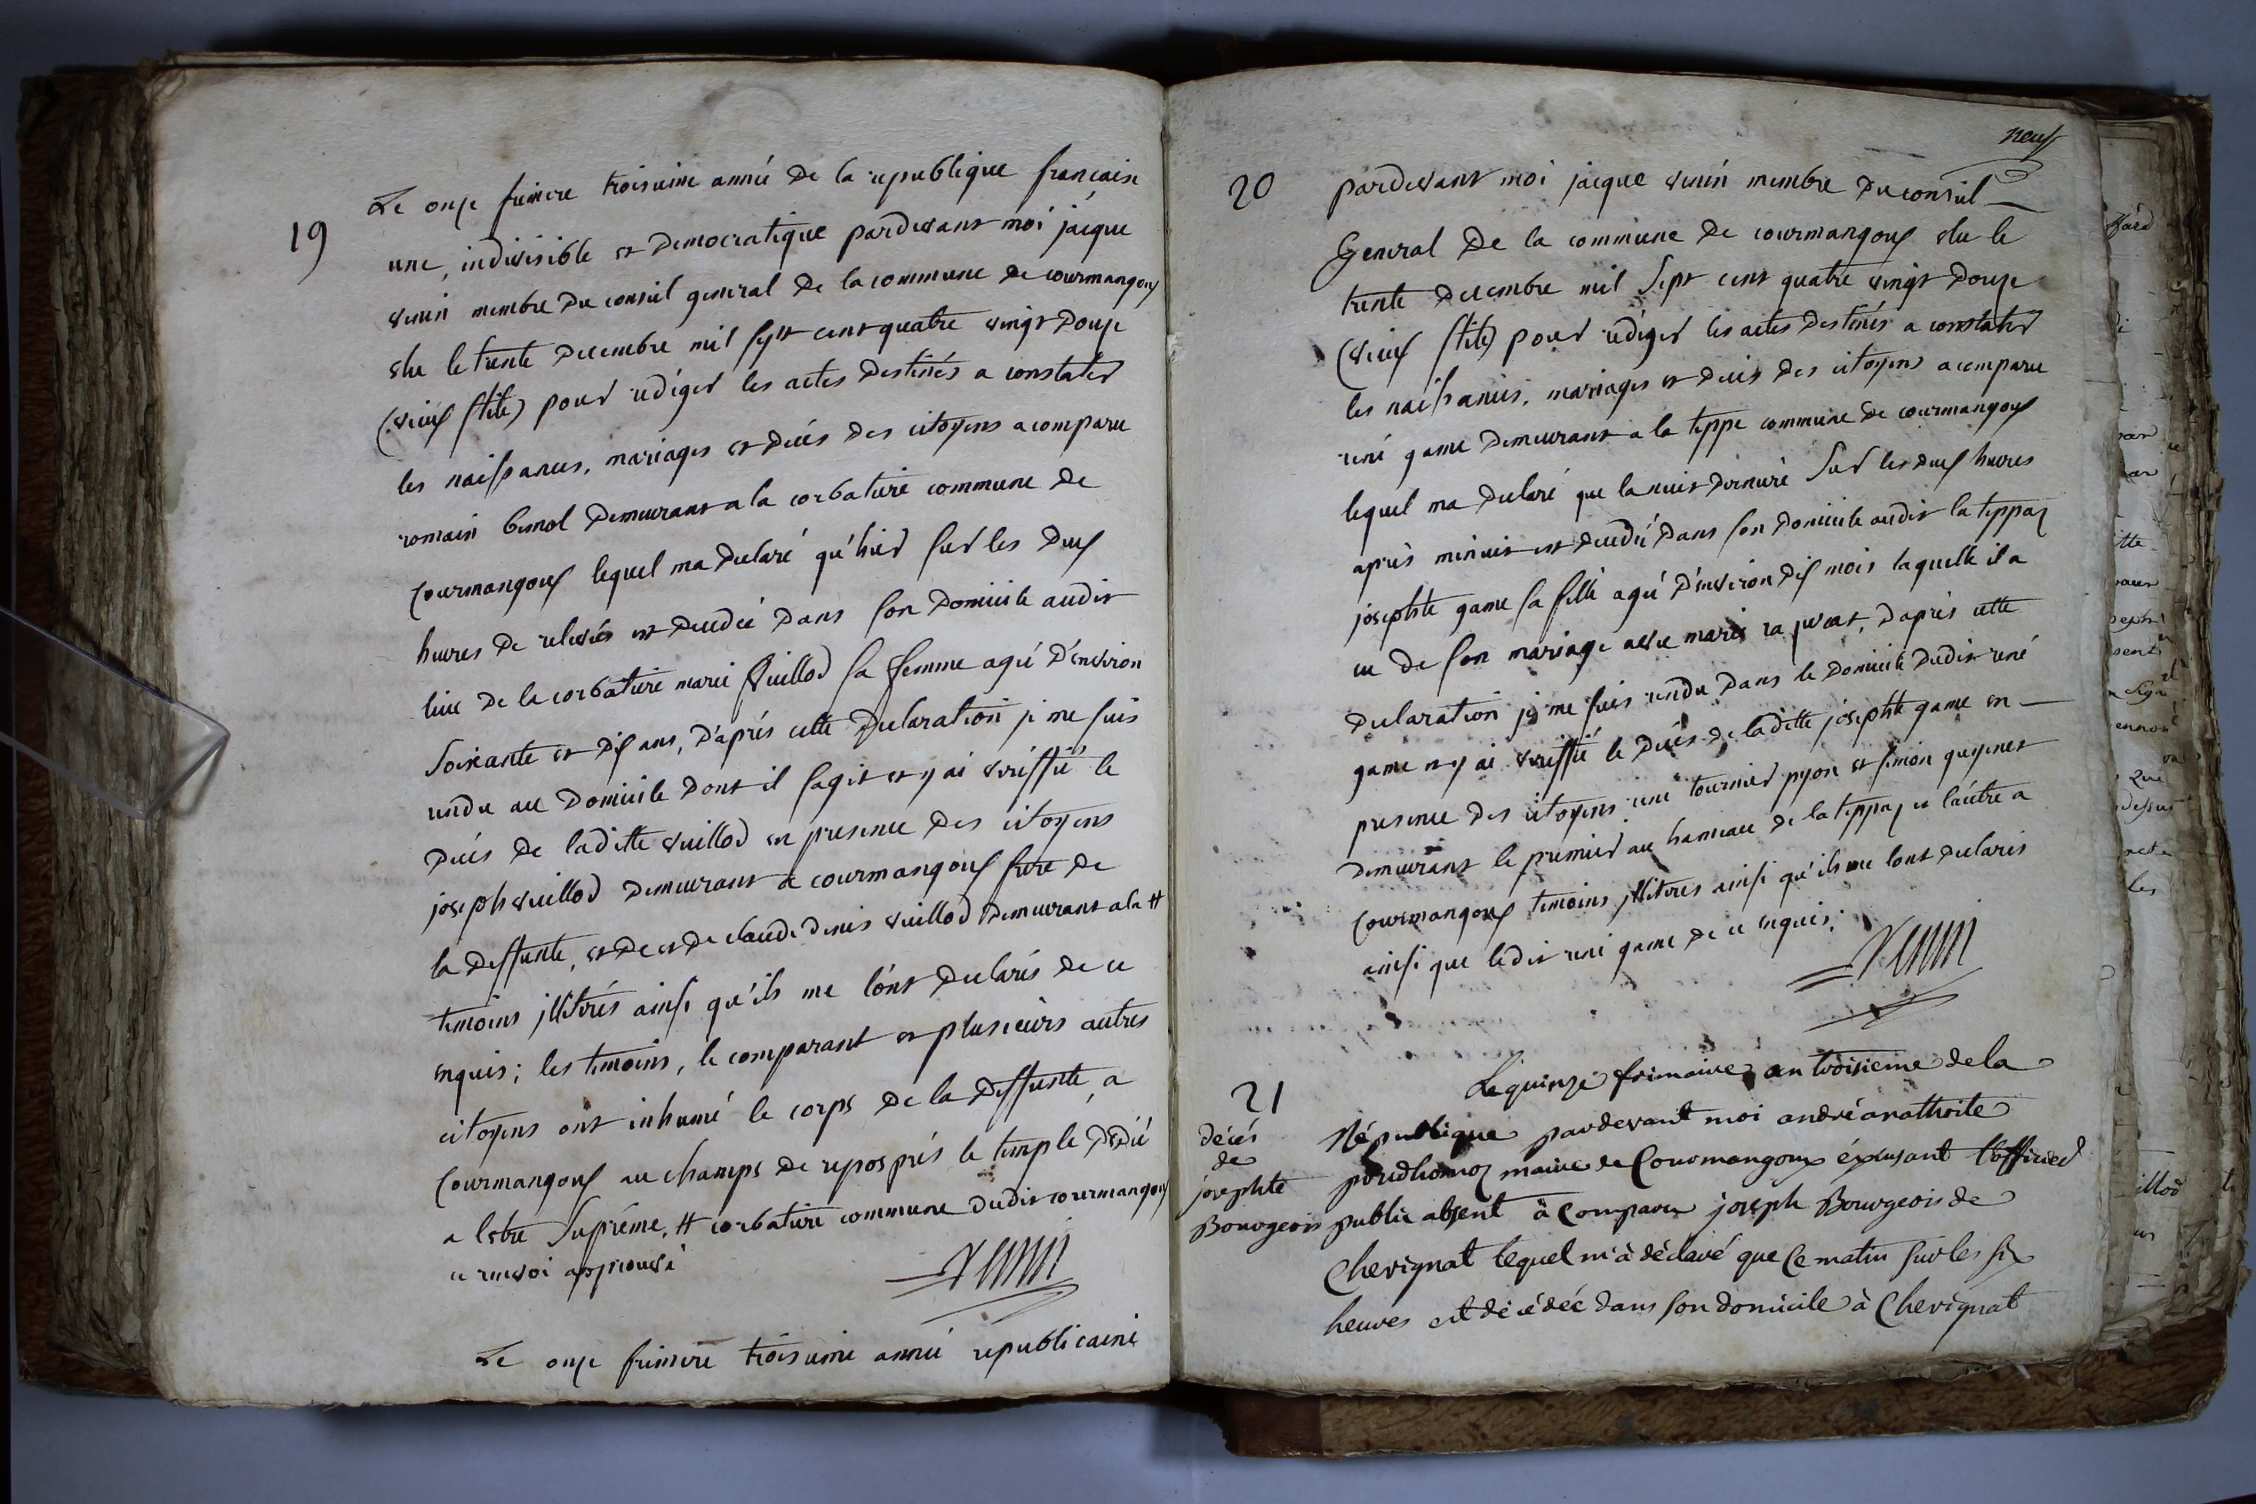 19
Le onze frimere troisieme année de la republique francaise
une, indivisible et democratique pardevant moi jacque
venin membre du conseil general de la commune de courmangoux
elu le trente decembre mil sept cent quatre vingt douze
(vieux stile) pour rediger les actes destinés a constater
les naissances, mariages et decés des citoyens a comparu
romain benol demeurant a la corbatiere commune de
Courmangoux lequel ma declaré qu'hier sur les deux
heures de relevées est decedée dans son domicile audit
lieu de la corbatiere marie vuillod sa femme agée d'environ
soixante et dix ans, d'aprés cette declaration je me suis
rendu au domicile dont il sagit et y ai veriffié le
decés de laditte vuillod en presence des citoyens
joseph vuillod demeurant a courmangoux frere de
la deffunte, et de et de claude denis vuillod demeurant a la #
temoins illitrés ainsi qu'ils me l'ont declarés de ce
enquis; les temoins, le comparant et plusieurs autres
citoyens ont inhumé le corps de la deffunte, a
Courmangoux au champs de repos prés le temple dedié
a letre Supréme, # corbatiere commune dudit courmangoux
ce renvoi approuvé
Venin
Le onze frimere troisieme année republicaine
neuf
20
pardevant moi jacque venin membre du conseil
General de la commune de courmangoux elu le
trente decembre mil Sept cent quatre vingt douze
(vieux stile) pour rediger les actes destinés a constater
les naissances, mariages et decés des citoyens a comparu
rené game demeurant a la teppe commune de courmangoux
lequel ma declaré que la nuit derniere sur les deux heures
aprés minuit est decedé dans son domicile audit la teppaz
josephte game sa fille agée d'environ dix mois laquelle il a
eu de son mariage avec marie, d'aprés cette
declaration je me suis rendu dans le domicile dudit rené
game et y ai veriffié le decés de laditte josephte game en
presence des citoyens rené tournier pyon et simon
demeurant le premier au hameau de la teppaz et l'autre a
Courmangoux temoins illitrés ainsi qu'ils me lont declarés
ainsi que ledit rené game de ce enquis.
Venin
21
décés
de
josephte
Bourgeois
Le quinze frimaire an troisieme de la
République pardevant moi andré anathoile
prudhomoz maire de Courmangoux éxcusant l'officier
public absent à Comparu joseph Bourgeois de
Chevignat lequel m'à déclaré que ce matin sur les six
heures est décédée dans son domicile à Chevignat